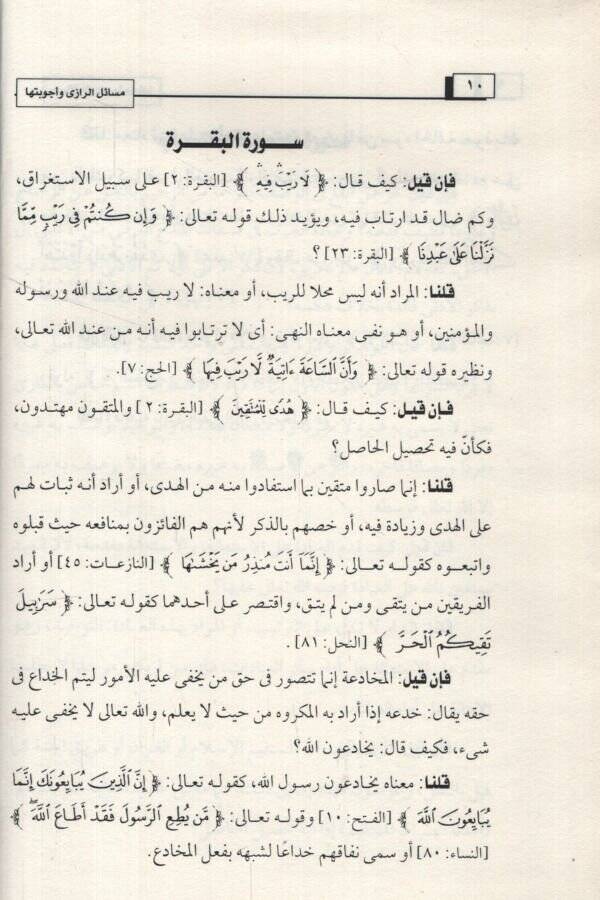 ١٠
مسائل الرازى وأجوبتها
سورة البقرة
فإن قيل: كيف قال: ﴿ لَا رَيْبَ ۛ فِيهِ ۛ ﴾ [البقرة: ٢] على سبيل الاستغراق،
وكم ضال قد ارتاب فيه، ويؤيد ذلك قوله تعالى: ﴿ وَإِن كُنتُمْ فِى رَيْبٍ مِّمَّا
نَزَّلْنَا عَلَىٰ عَبْدِنَا ﴾ [البقرة: ٢٣] ؟
قلنا: المراد أنه ليس محلا للريب، أو معناه: لا ريب فيه عند الله ورسوله
والمؤمنين، أو هو نفى معناه النهى: أى لا ترتابوا فيه أنه من عند الله تعالى،
ونظيره قوله تعالى: ﴿ وَأَنَّ السَّاعَةَ ءَاتِيَةٌ لَّا رَيْبَ فِيهَا ﴾ [الحج: ٧].
فإن قيل: كيف قال: ﴿ هُدًى لِّلْمُتَّقِينَ ﴾ [البقرة: ٢] والمتقون مهتدون،
فكأنّ فيه تحصيل الحاصل؟
قلنا: إنما صاروا متقين بما استفادوا منه من الهدى، أو أراد أنه ثبات لهم
على الهدى وزيادة فيه، أو خصهم بالذكر لأنهم هم الفائزون بمنافعه حيث قبلوه
واتبعوه كقوله تعالى: ﴿ إِنَّمَا أَنتَ مُنذِرُ مَن يَخْشَىٰهَا ﴾ [النازعات: ٤٥] أو أراد
الفريقين من يتقى ومن لم يتق، واقتصر على أحدهما كقوله تعالى: ﴿ سَرَٰبِيلَ
تَقِيكُمُ ٱلْحَرَّ ﴾ [النحل: ٨١] .
فإن قيل: المخادعة إنما تتصور فى حق من يخفى عليه الأمور ليتم الخداع فى
حقه يقال: خدعه إذا أراد به المكروه من حيث لا يعلم، والله تعالى لا يخفى عليه
شىء، فكيف قال: يخادعون الله؟
قلنا: معناه يخادعون رسول الله، كقوله تعالى: ﴿ إِنَّ ٱلَّذِينَ يُبَايِعُونَكَ إِنَّمَا
يُبَايِعُونَ ٱللَّهَ ﴾ [الفتح: ١٠] وقوله تعالى: ﴿ مَّن يُطِعِ ٱلرَّسُولَ فَقَدْ أَطَاعَ ٱللَّهَ ۖ ﴾
[النساء: ٨٠] أو سمى نفاقهم خداعًا لشبهه بفعل المخادع.